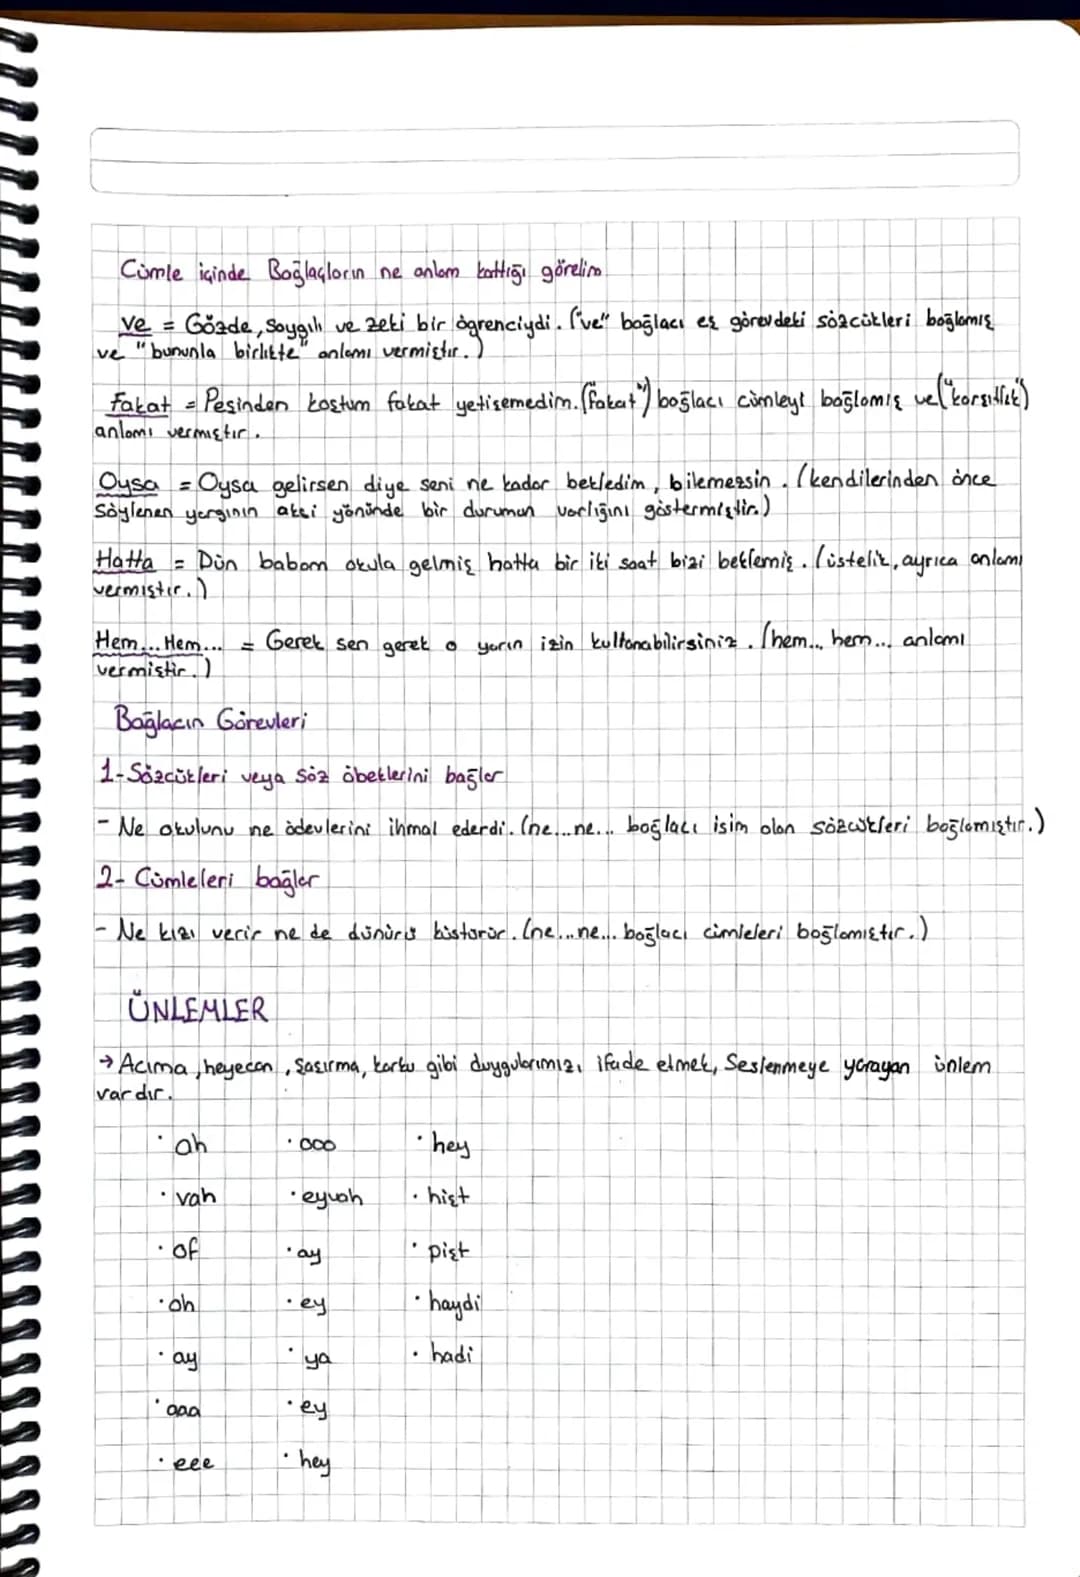 Cümle içinde Bağlaçların ne anlam kattığı görelim
ve = Gözde, saygılı ve zeki bir ögrenciydi. ("ve" bağlacı eş görevdeki sözcükleri bağlamış
ve "bununla birlikte" anlamı vermiştir.)
Fakat = Peşinden koştum fakat yetişemedim. ("fakat") bağlacı cümleyi bağlamış ve ("karşıtlık")
anlamı vermiştir.
Oysa = Oysa gelirsen diye seni ne kadar bekledim, bilemezsin. (kendilerinden önce
Söylenen yargının aksi yönünde bir durumun varlığını göstermiştir.)
Hatta = Dün babam okula gelmiş hatta bir iki saat bizi beklemiş. (üstelik, ayrıca anlamı
vermiştir.)
Hem... Hem... = Gerek sen gerek o yarın izin kullanabilirsiniz. (hem... hem... anlamı
vermiştir.)
Bağlacın Görevleri
1-Sözcükleri veya söz öbeklerini bağlar
- Ne okulunu ne ödevlerini ihmal ederdi. (ne...ne... bağlacı isim olan sözcükleri bağlamıştır.)
2- Cümleleri bağlar
- Ne kızı verir ne de dünürü küstürür. (ne...ne... bağlacı cümleleri bağlamıştır.)
ÜNLEMLER
→ Acıma, heyecan, şaşırma, korku gibi duygularımızı ifade etmek, Seslenmeye yarayan ünlem
vardır.
· ah · ooo · hey
· vah · eyvah · hişt
· of · ay · pişt
· oh · ey · haydi
· ay · ya · hadi
· aaa · ey
· eee · hey